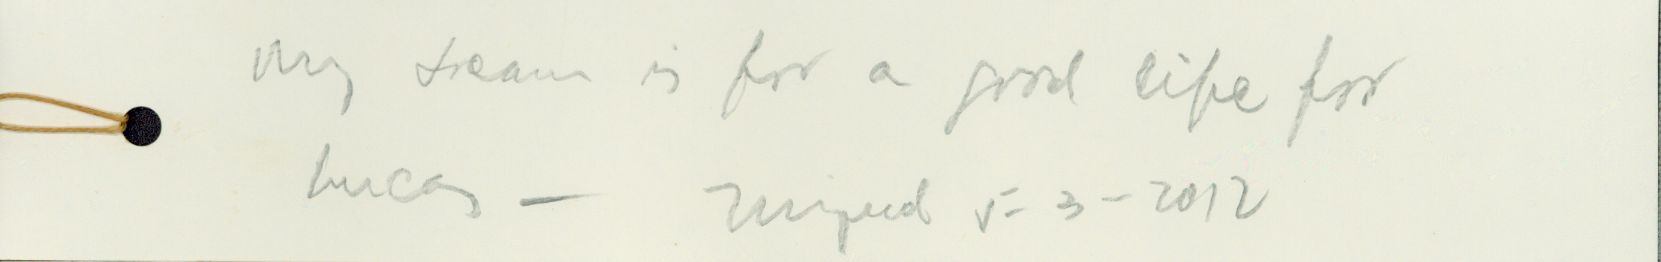 My dream is for a good life for
Lucas — Miguel 5-3-2012